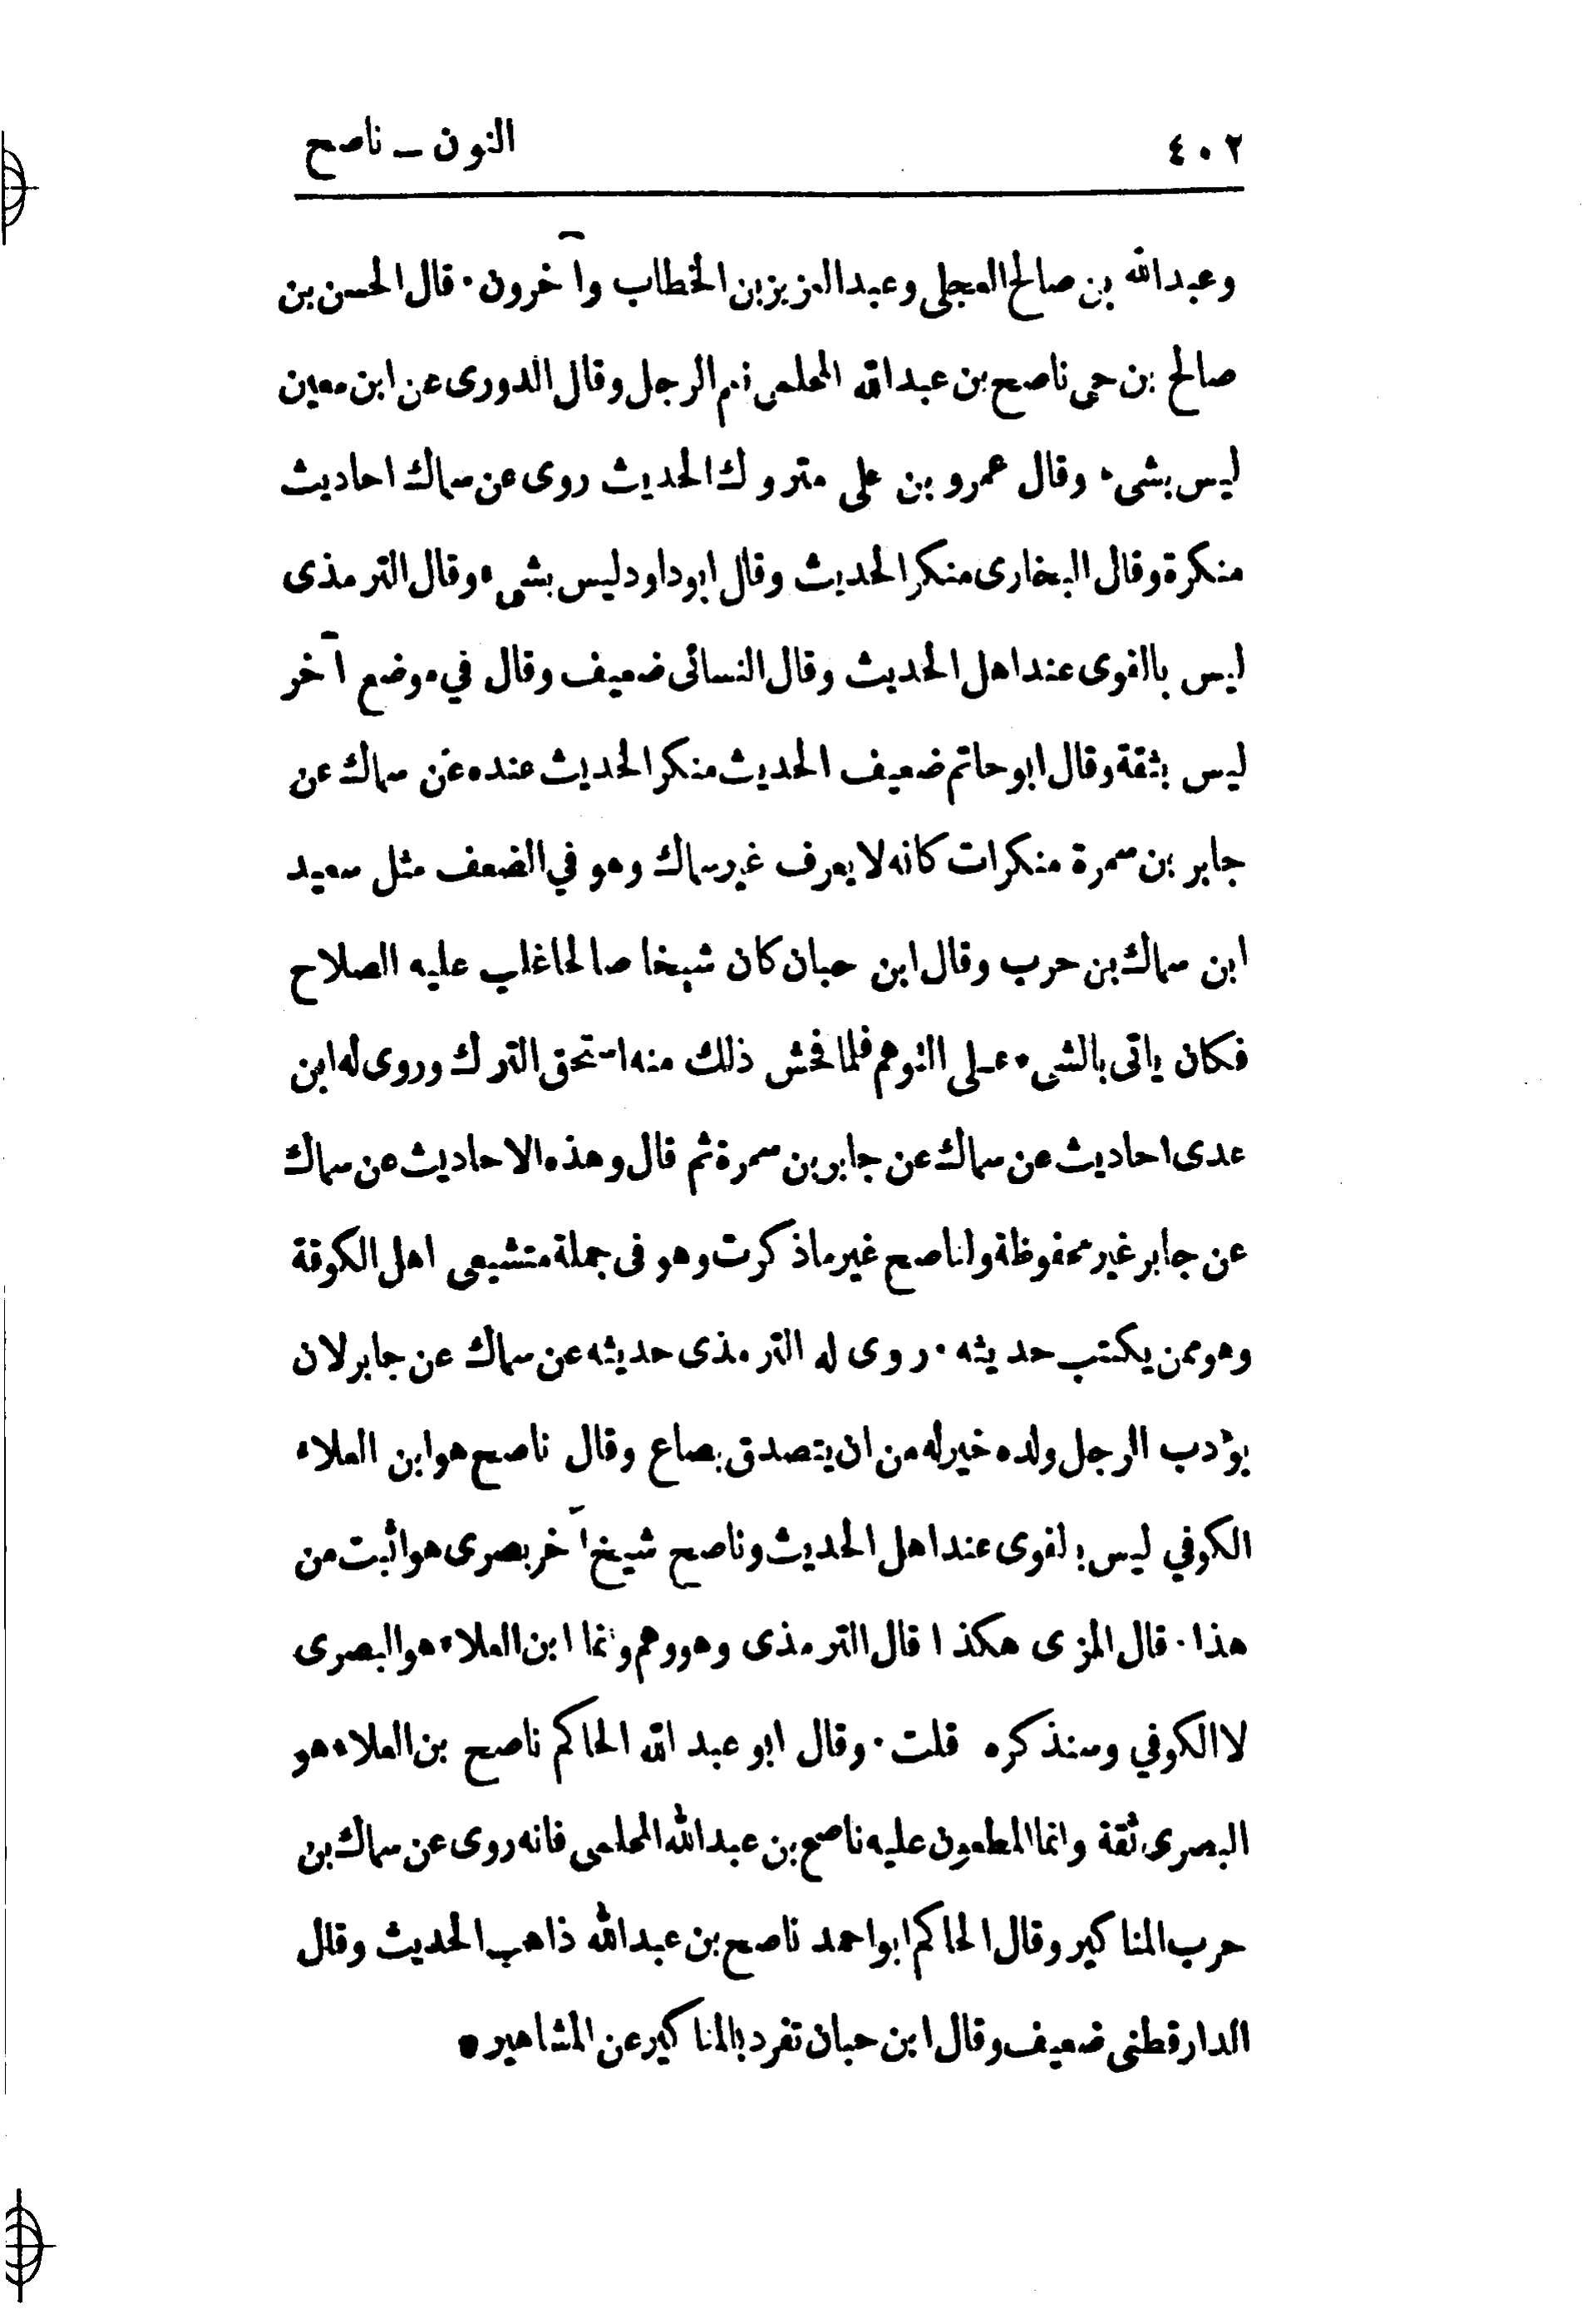 ٤٠٢ النون ـ ناصح
وعبدالله بن صالح العجلى وعبدالعزيز بن الخطاب وآخرون · قال الحسن بن
صالح بن حى ناصح بن عبدالله المحلمى نعم الرجل وقال الدورى عن ابن معين
ليس بشىء وقال عمرو بن على متروك الحديث روى عن سماك احاديث
منكرة وقال البخارى منكر الحديث وقال ابوداود ليس بشىء وقال الترمذى
ليس بالقوى عند اهل الحديث وقال النسائى ضعيف وقال في موضع آخر
ليس بثقة وقال ابوحاتم ضعيف الحديث منكر الحديث عنده عن سماك عن
جابر بن سمرة منكرات كانه لا يعرف غير سماك وهو في الضعف مثل سعيد
ابن سماك بن حرب وقال ابن حبان كان شيخا صالحا غلب عليه الصلاح
فكان ياتى بالشىء على التوهم فلما فحش ذلك منه استحق الترك وروى له ابن
عدى احاديث عن سماك عن جابر بن سمرة ثم قال وهذه الاحاديث عن سماك
عن جابر غير محفوظة ولناصح غير ماذكرت وهو فى جملة متشيعى اهل الكوفة
وهو ممن يكتب حديثه · روى له الترمذى حديثه عن سماك عن جابر لان
يؤدب الرجل ولده خير له من ان يتصدق بصاع وقال ناصح هو ابن العلاء
الكوفي ليس بالقوى عند اهل الحديث وناصح شيخ آخر بصرى هو اثبت من
هذا · قال المزى هكذا قال الترمذى وهو وهم وانما ابن العلاء هو البصرى
لا الكوفي وسنذكره قلت · وقال ابو عبد الله الحاكم ناصح بن العلاء هو
البصرى ثقة وانما المطعون عليه ناصح بن عبدالله المحلمى فانه روى عن سماك بن
حرب المناكير وقال الحاكم ابواحمد ناصح بن عبدالله ذاهب الحديث وقال
الدارقطنى ضعيف وقال ابن حبان تفرد بالمناكير عن المشاهير •